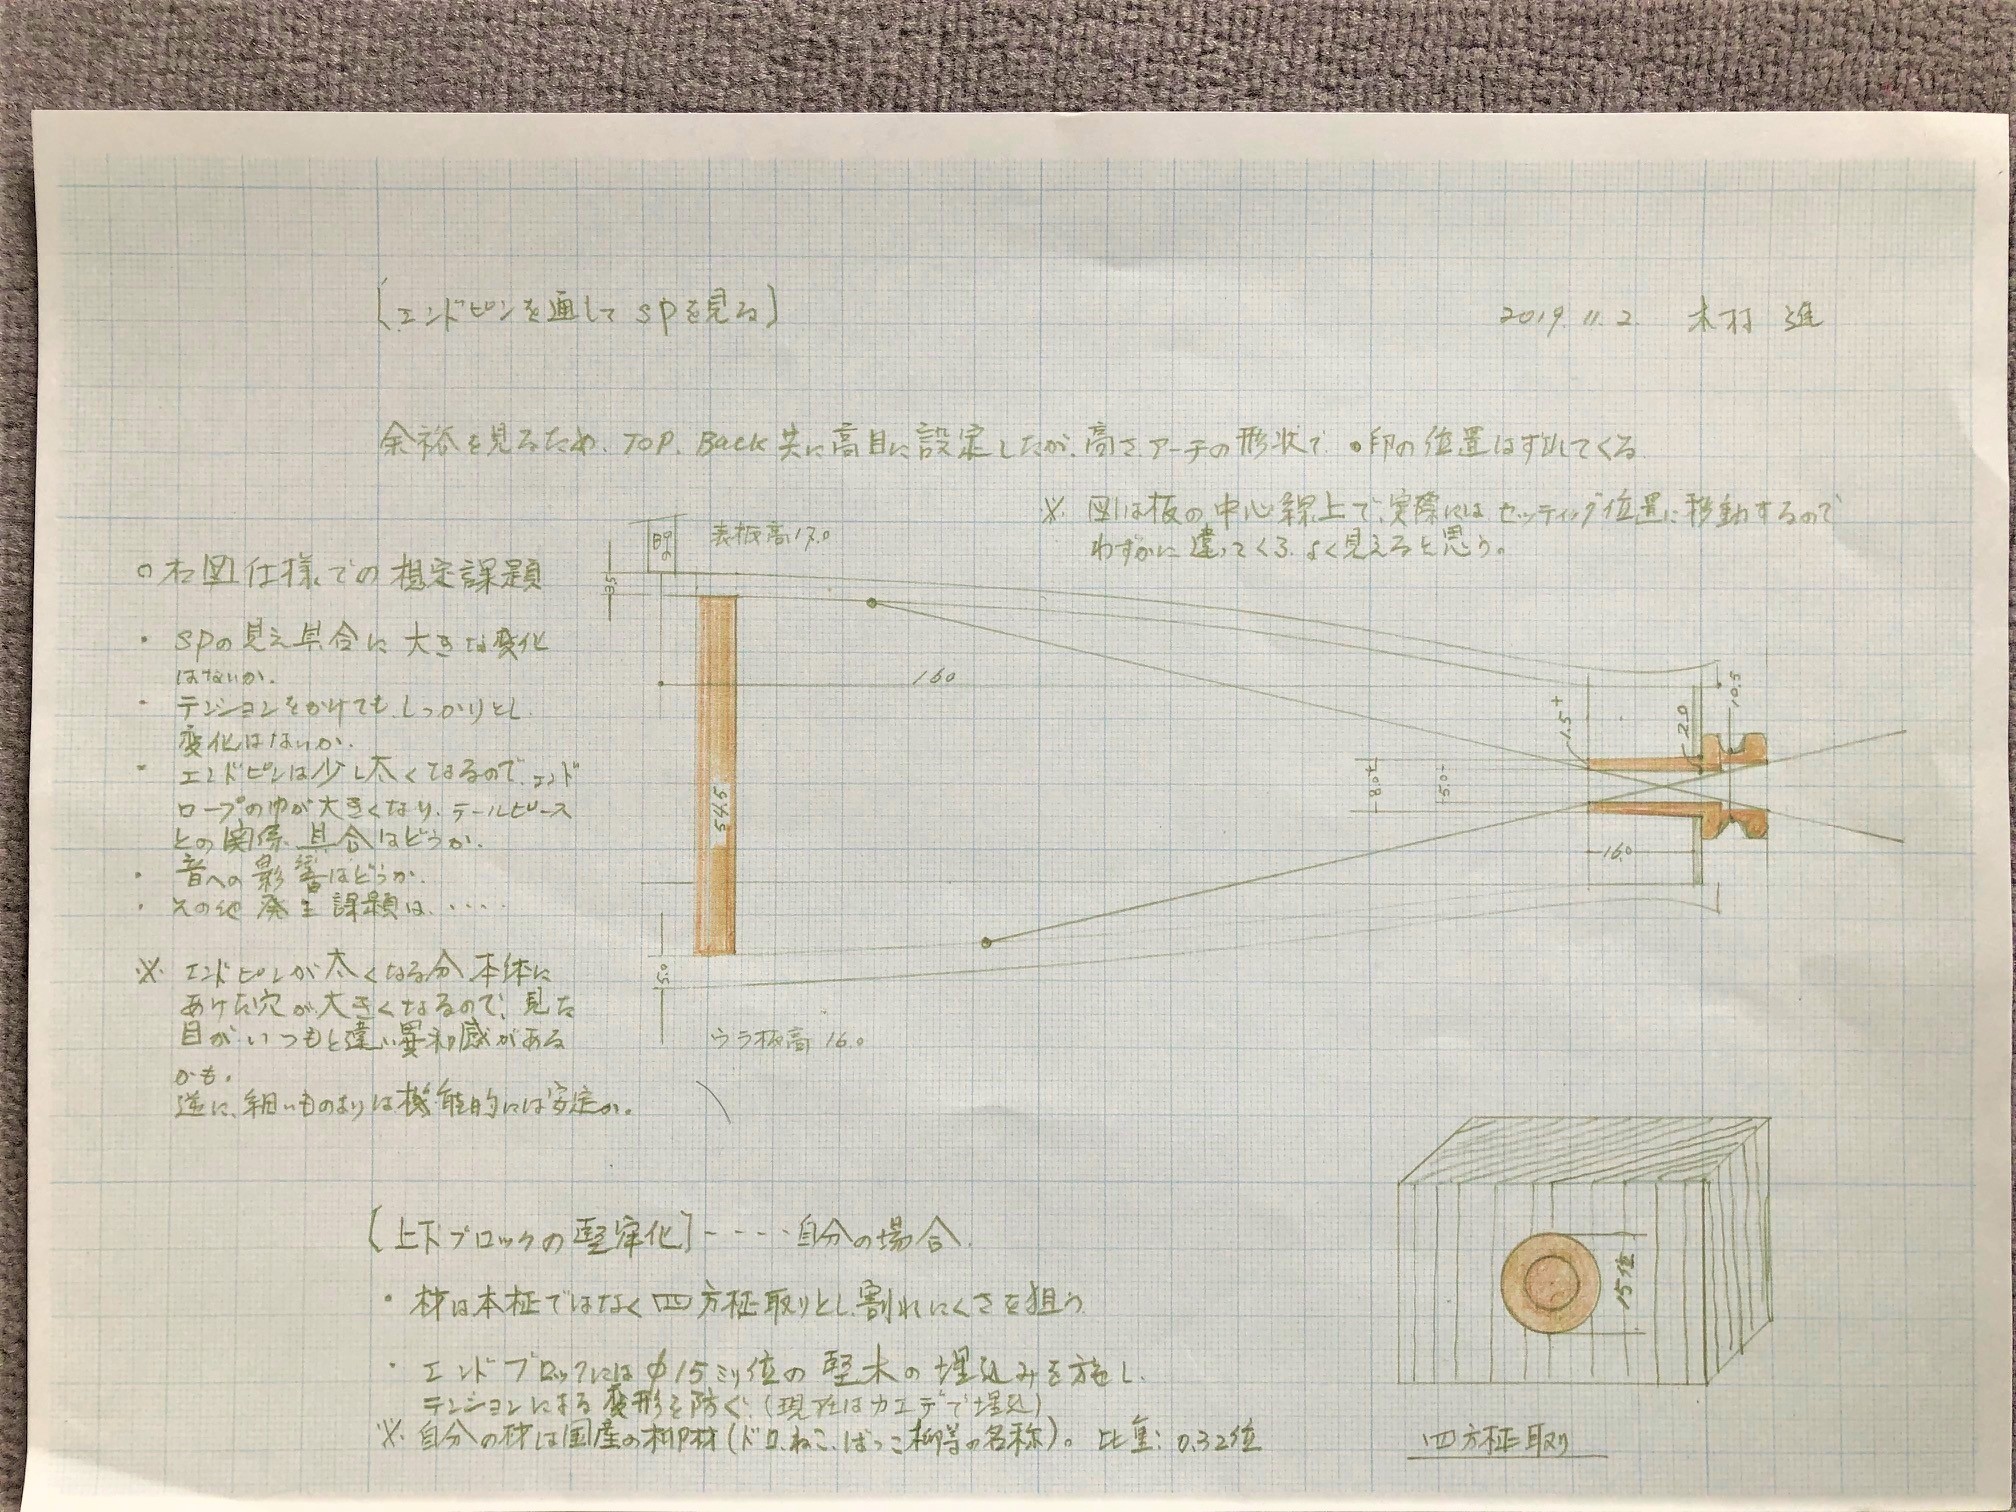 [エンドピンを通してSPを見る]
2019.11.2. 木村 進
余裕を見るため、TOP、Back共に高目に設定したが、高さ、アーチの形状で •印の位置はずれてくる
※ 図は板の中心線上で、実際にはセッティング位置に移動するので
わずかに違ってくる、よく見えると思う。
表板高17.0
○右図仕様での想定課題
・SPの見え具合に大きな変化
はないか。
・テンションをかけても、しっかりとし
変化はないか。
・エンドピンは少し太くなるので、エンド
ロープの巾が大きくなり、テールピース
との関係具合はどうか。
・音への影響はどうか。
・その他発生課題は、・・・・
※ エンドピンが太くなる分本体に
あけた穴が大きくなるので、見た
目がいつもと違い異和感がある
かも。
逆に、細いものよりは機能的には安定か。
3.5
160
54.5
5.0
1.5+
2.0
10.5
8.0+
5.0+
16.0
ウラ板高 16.0
[上下ブロックの堅牢化]・・・・自分の場合
・材は本柾ではなく四方柾取りとし、割れにくさを狙う
・エンドブロックにはφ15ミリ位の堅木の埋込みを施し、
テンションによる変形を防ぐ(現在はカエデで埋込)
※ 自分の材は国産の柳材(ドロ、ねこ、ばっこ柳等の名称)。比重:0.32位
15位
四方柾取り